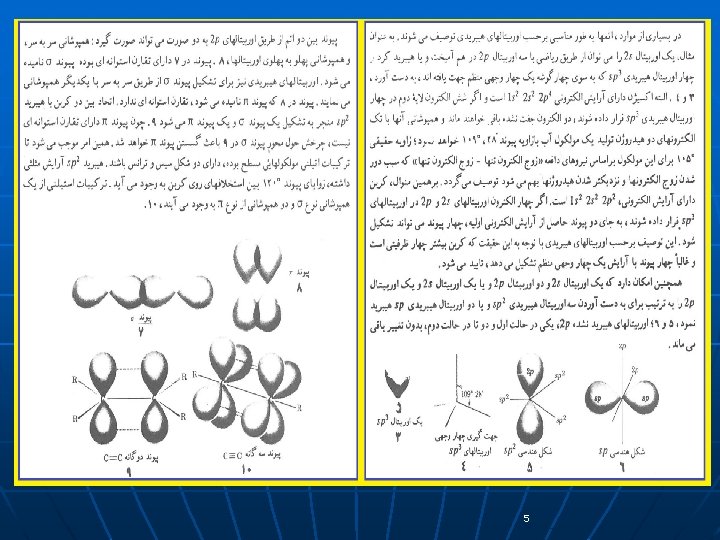 در بسیاری از موارد، آنها به طور مناسبی برحسب اوربیتالهای هیبریدی توصیف می شوند. به عنوان
مثال، یک اوربیتال 2s را می توان از طریق ریاضی با سه اوربیتال 2p در هم آمیخت و یا هیبرید کرد تا
چهار اوربیتال هیبریدی sp³ که به سوی چهارگوشه یک چهار وجهی منظم جهت یافته اند، به دست آورد،
۳ و ۴. البته اکسیژن دارای آرایش الکترونی 1s² 2s² 2p⁴ است و اگر شش الکترون لایهٔ دوم در چهار
اوربیتال هیبریدی sp³ قرار داده شوند، دو اوربیتال، الکترون جفت نشده باقی خواهند ماند و همپوشانی آنها با تک
الکترونهای دو هیدروژن تولید یک مولکول آب بازاویه پیوند ۱۰۹° ۲۸′ خواهد نمود؛ زاویه حقیقی
۱۰۵° برای این مولکول براساس نیروهای دافعه «زوج الکترون تنها - زوج الکترون تنها» که سبب دور
شدن زوج الکترونها و نزدیکتر شدن هیدروژنها بهم می شود توصیف می گردد. برهمین منوال، کربن
دارای آرایش الکترونی، 1s² 2s² 2p² است. اگر چهار الکترون اوربیتالهای 2s و 2p در اوربیتالهای
sp³ قرار داده شوند، به جای دو پیوند حاصل از آرایش الکترونی اولیه، چهار پیوند می تواند تشکیل
شود. این توصیف برحسب اوربیتالهای هیبریدی با توجه به این حقیقت که کربن بیشتر چهار ظرفیتی است
و غالباً چهار پیوند با آرایش یک چهار وجهی منظم تشکیل می دهد، تایید می شود.
همچنین امکان دارد که یک اوربیتال 2s و دو اوربیتال 2p و یا یک اوربیتال 2s و یک اوربیتال
2p را به ترتیب برای به دست آوردن سه اوربیتال هیبریدی sp² و یا دو اوربیتال هیبریدی sp هیبرید
نمود، ۵ و ۶؛ اوربیتالهای هیبرید نشده 2p، یکی در حالت اول و دو تا در حالت دوم، بدون تغییر باقی
می ماند.
یک اوربیتال sp³
۳
109° 28′
جهت گیری چهار وجهی
اوربیتالهای sp³
۴
2p
sp²
sp²
sp²
شکل هندسی sp²
۵
2p
2p
sp
sp
شکل هندسی sp
۶
پیوند بین دو اتم از طریق اوربیتالهای 2p به دو صورت می تواند صورت گیرد: همپوشانی سر به سر،
و همپوشانی پهلو به پهلوی اوربیتالها، ۸. پیوند در ۷ دارای تقارن استوانه ای بوده پیوند σ نامیده
می شود. اوربیتالهای هیبریدی نیز برای تشکیل پیوند σ از طریق سر به سر با یکدیگر همپوشانی
می نمایند. پیوند در ۸ که پیوند π نامیده می شود، تقارن استوانه ای ندارد. اتحاد بین دو کربن با هیبرید
sp² منجر به تشکیل یک پیوند σ و یک پیوند π می شود ۹. چون پیوند π دارای تقارن استوانه ای
نیست، چرخش حول محور پیوند σ در ۹ باعث گسستن پیوند π خواهد شد. همین امر موجب می شود تا
ترکیبات اتیلنی مولکولهایی مسطح بوده، دارای دو شکل سیس و ترانس باشند. هیبرید sp² آرایش مثلثی
داشته، زوایای پیوند ۱۲۰° بین استخلافهای روی کربن به وجود می آید. ترکیبات استیلنی از یک
همپوشانی از نوع σ و دو همپوشانی از نوع π به وجود می آیند، ۱۰.
پیوند σ
۷
پیوند π
۸
R
R
R
R
پیوند دوگانه C=C
۹
R
R
پیوند سه گانه C≡C
۱۰
5